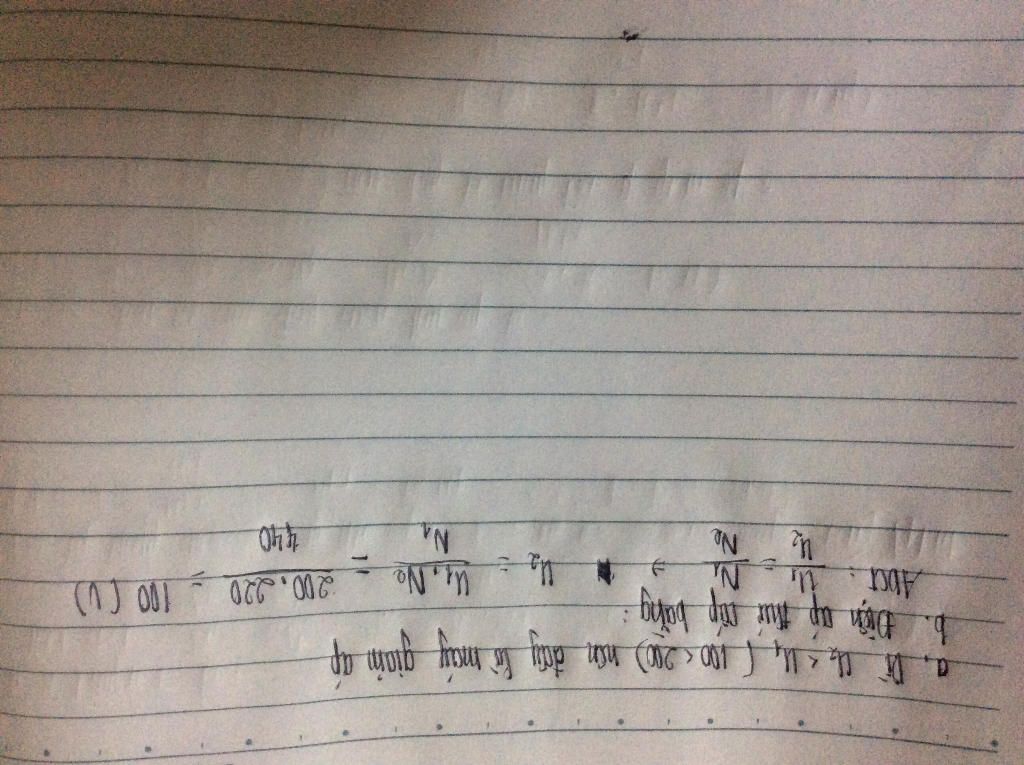 a. Vì U₂ < U₁ (100 < 200) nên đây là máy giảm áp
b. Điện áp thứ cấp bằng:
ADCT: U₁/U₂ = N₁/N₂ ⇒ U₂ = U₁.N₂/N₁ = 200.220/440 = 100 (V)